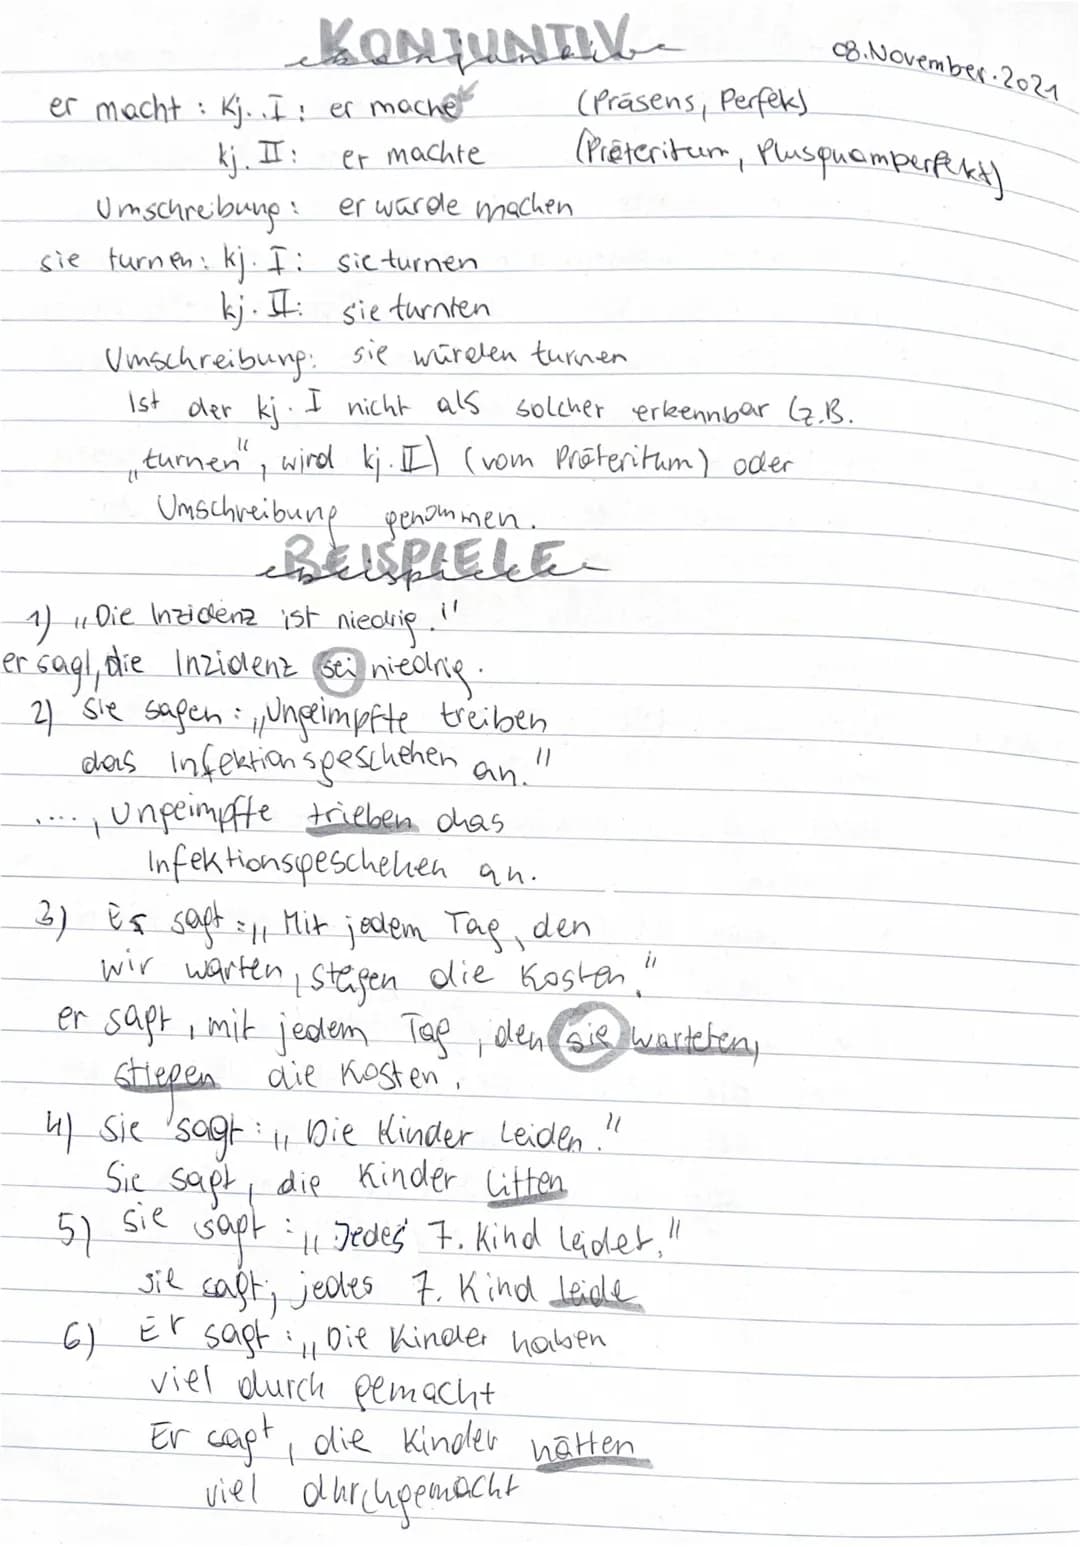 KONJUNTIV
08.November.2021
er macht : Kj. I : er mache (Präsens, Perfek)
kj. II : er machte (Präteritum, Plusquamperfekt)
Umschreibung : er würde machen
sie turnen : kj. I : sie turnen
kj. II : sie turnten
Umschreibung : sie würden turnen
Ist der kj. I nicht als solcher erkennbar (z.B.
„turnen“, wird kj. II) (vom Präteritum) oder
Umschreibung genommen.
BEISPIELE
1) „Die Inzidenz ist niedrig."
er sagt, die Inzidenz sei niedrig.
2) Sie sagen : „Ungeimpfte treiben
das Infektionsgeschehen an."
...., Ungeimpfte trieben das
Infektionsgeschehen an.
3) Er sagt : „Mit jedem Tag, den
wir warten, steigen die Kosten."
er sagt, mit jedem Tag, den sie warteten,
stiegen die Kosten.
4) Sie sagt : „Die Kinder leiden."
Sie sagt, die Kinder litten
5) sie sagt : „Jedes 7. Kind leidet."
sie sagt, jedes 7. Kind leide
6) Er sagt : „Die Kinder haben
viel durch gemacht
Er sagt, die Kinder hätten
viel durchgemacht